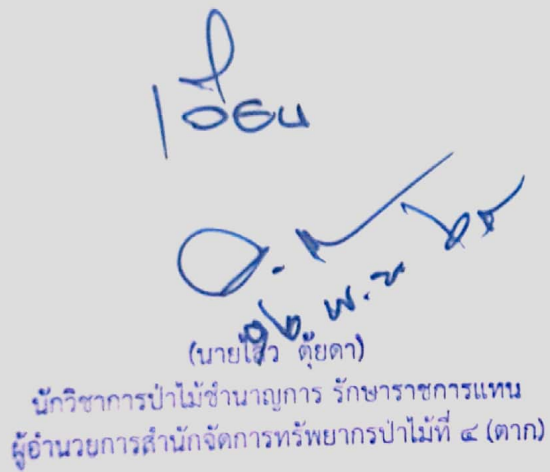 เวียน
๑๒ พ.ค ๖๕
(นายไสว ตุ้ยดา)
นักวิชาการป่าไม้ชำนาญการ รักษาราชการแทน
ผู้อำนวยการสำนักจัดการทรัพยากรป่าไม้ที่ ๔ (ตาก)